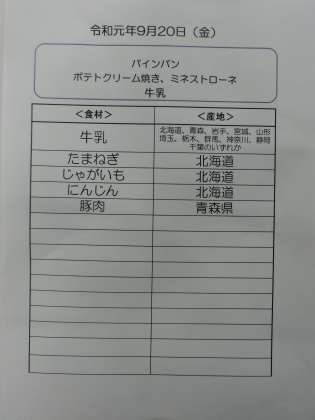 令和元年9月20日（金）
パインパン
ポテトクリーム焼き、ミネストローネ
牛乳
＜食材＞ ＜産地＞
牛乳 北海道、青森、岩手、宮城、山形
埼玉、栃木、群馬、神奈川、静岡
千葉のいずれか
たまねぎ 北海道
じゃがいも 北海道
にんじん 北海道
豚肉 青森県